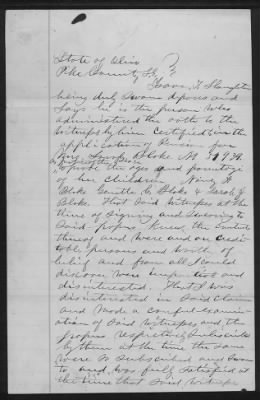 State of Ohio
Pike County SS
Isaac T.
being duly Sworn deposes and
Says he is the person who
administered the oath to the
Witnesses by him Certified in the
application of Pension for
to prove the age and parentage
of her Children
Bloke & Sarah J.
Bloke. That Said Witnesses at the
time of Signing and Swearing to
Said papers Knew the Contents
thereof and were and are credi-
ble persons and worthy of
belief and from all I could
discover were
and
disinterested. That I was
disinterested in Said Claim
and made a careful examin-
ation of Said Witnesses and the
papers respectively Subscribed
by them at the time the Same
were So Subscribed and Sworn
to and was fully Satisfied at
the time that Said Witnesses